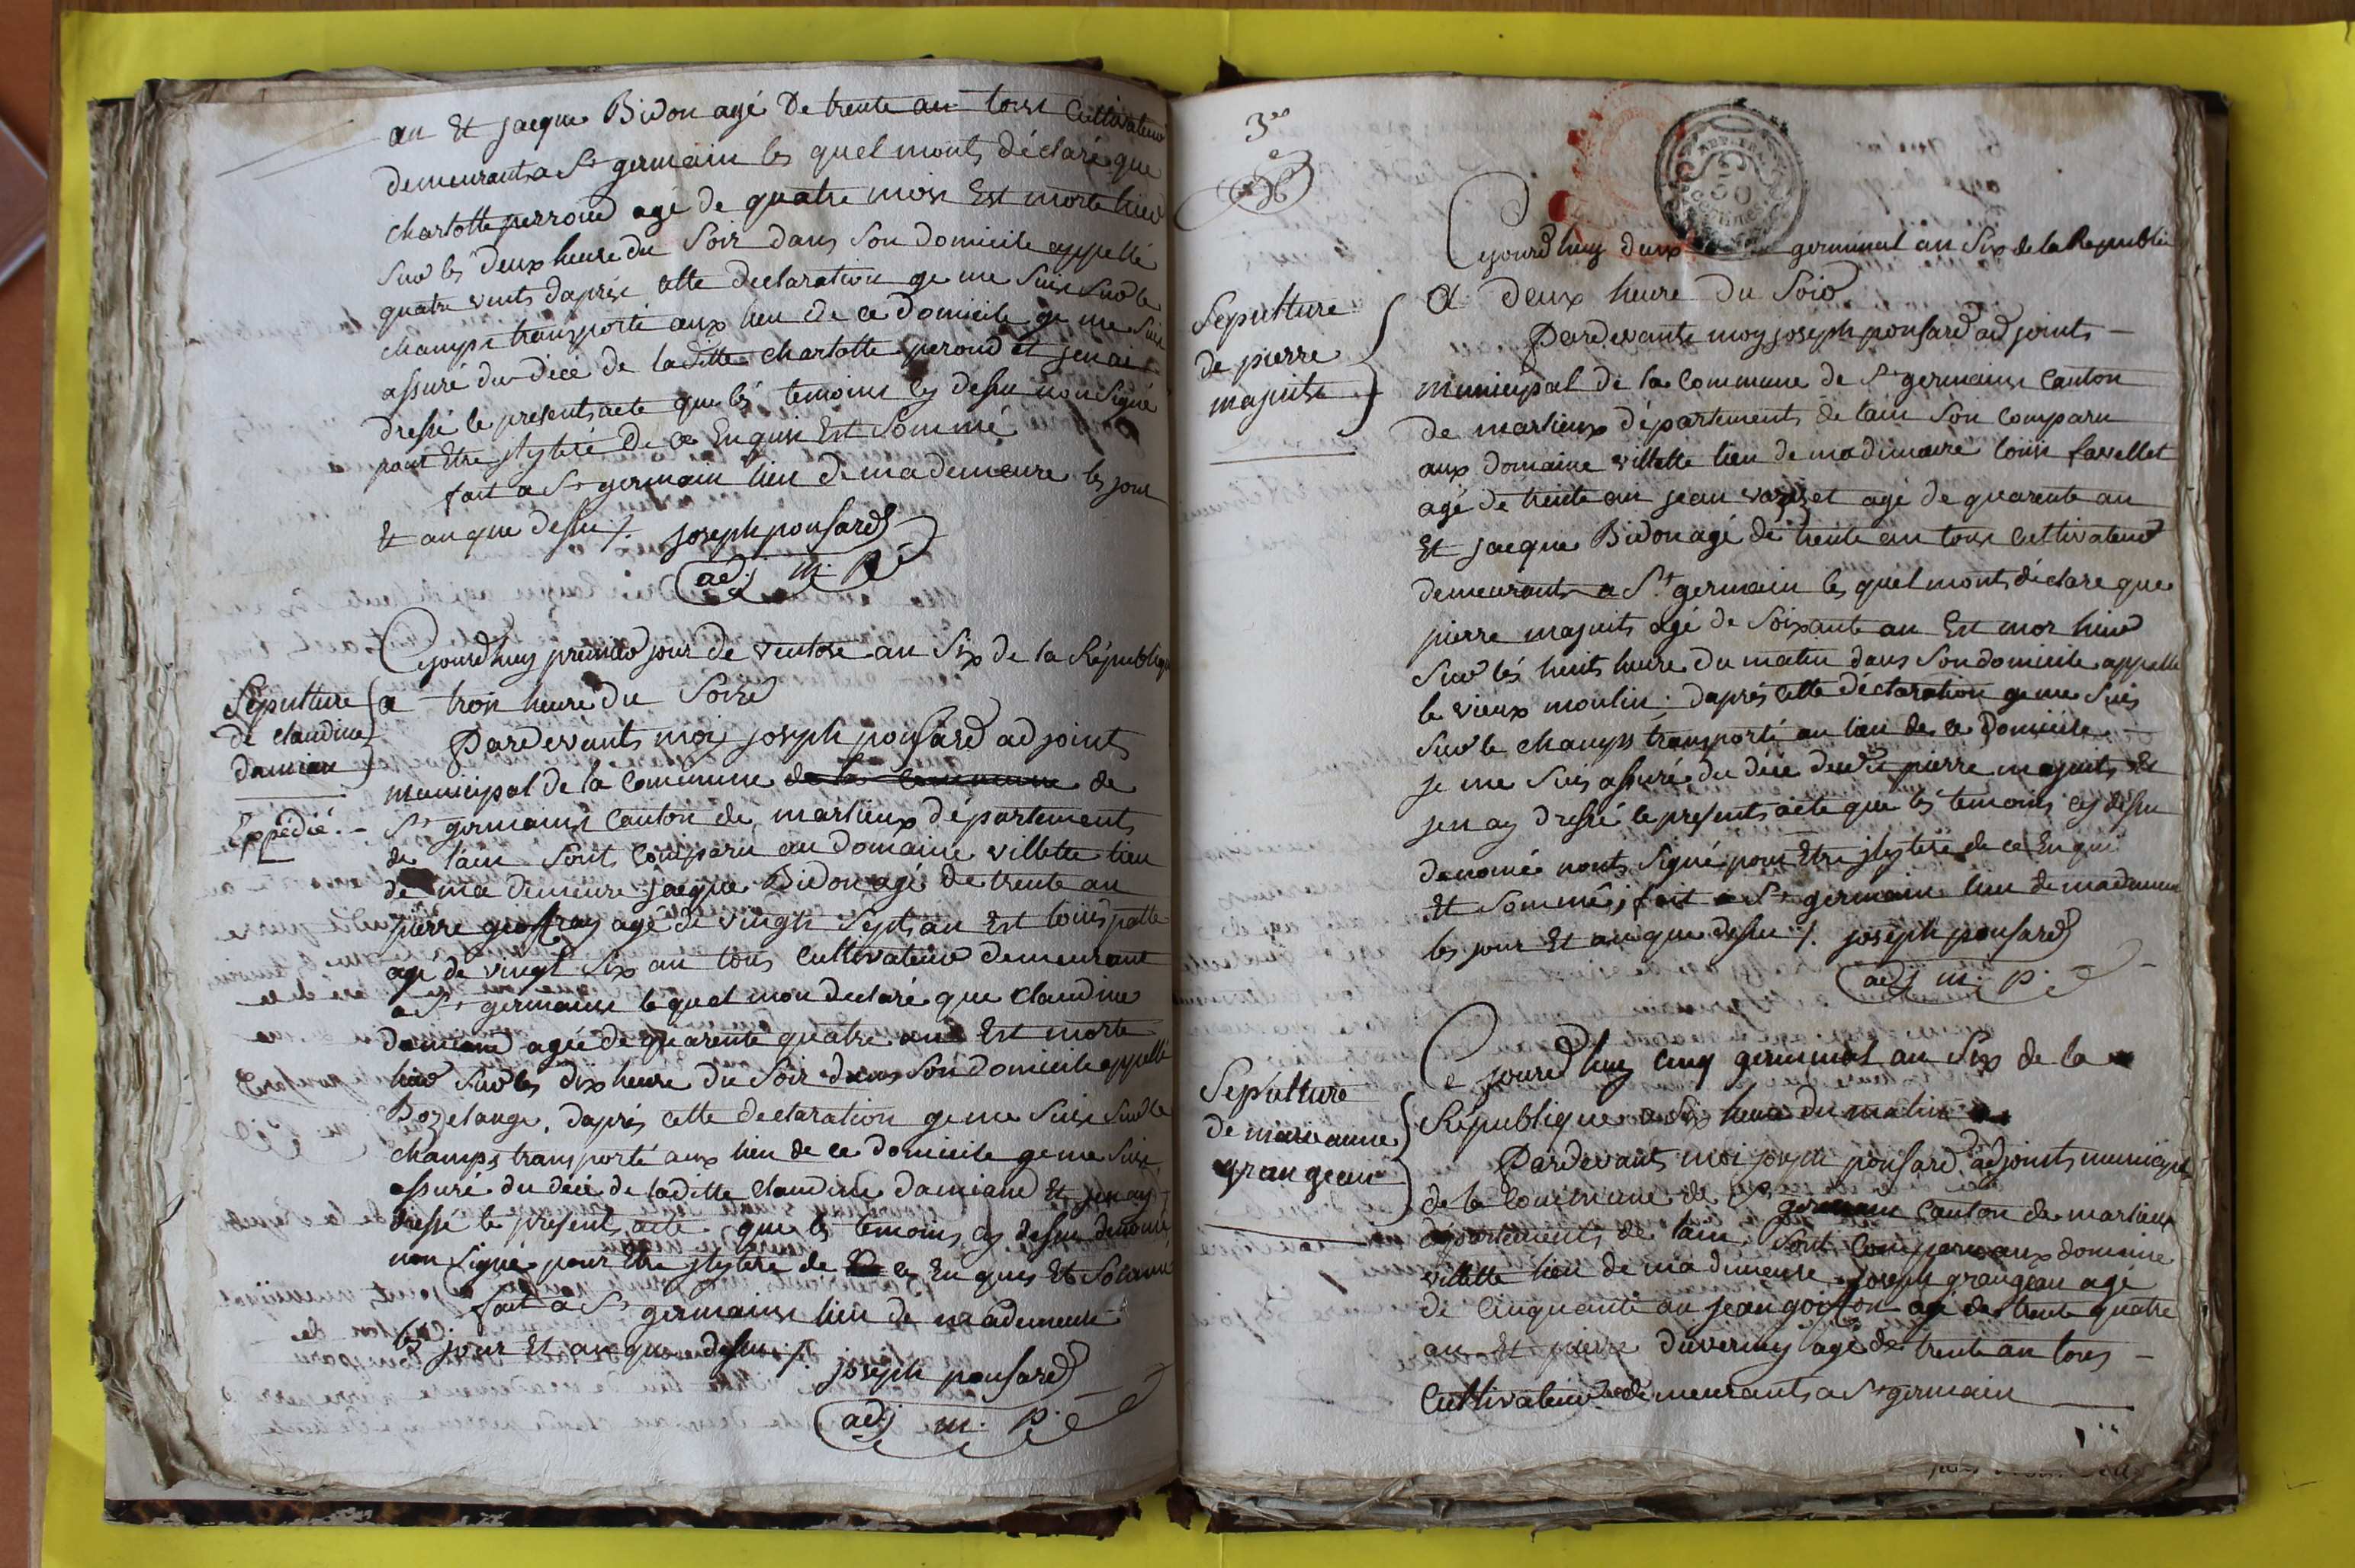 an Et jacque Bidon agé De trente an tous Cultivateur
demeurant a St germain les quel monts déclaré que
charlotte perroud agé de quatre mois Est morte hier
sur les deux heure du Soir dans Son domicile appellé
quatre vents daprès cette declaration ge me Suis Sur le
champs transporté aux lieu de ce domicile ge me Suis
assuré du décé de laditte charlotte peroud et jen ai
dressé le present acte que les temoins cy dessu non Signé
pour Etre
de ce Enquis Est Sommé
fait a St germain lieu de ma demeure les jour
Et an que dessu ./. joseph ponsard
adj. m. p.
Sepulture
de claudine
damian
Expedié.
Cejourdhuy premier jour de ventose an Six de la République
a trois heure du Soire
Pardevants moi joseph ponsard adjoints
municipal de la commune de la commune de
St germains Canton de marlieux départements
de lain Sont comparu au Domaine villette lieu
de ma demeure jacque Bidon agé de trente an
pierre geoffray agé de vingts Septs an Est louis patte
agé de vingt Six an tous Cultivateur demeurant
a St germains lequel mon declaré que Claudine
damiand agée de quarente quatre an Est morte
hier Sur les dix heure du Soir dans Son domicile appellé
Bozelange, daprés cette declaration ge me Suis Sur le
champs transporté aux lieu de ce domicile ge me Suis
assuré du décé de laditte Claudine Damiand Et jen ay
dressé le present acte que les temoins cy dessu denomé
non Signé pour Etre
de ce Enquis Et Sommé
fait a St germains lieu de ma demeure
les jour Et an que dessu ./.
joseph ponsard
adj m. p.
3e
50
centimes
Sepulture
de pierre
majuits
Cejourdhuy deux germinal an Six de la Republi
a deux heure Du Soir
Pardevants moy joseph ponsard adjoints
municipal de la Commune de St germains Canton
de marlieux départements de lain Son comparu
aux domaine villette lieu de ma demeure louis favellet
agé de trente an jean
agé de quarente an
Et jacque Bidon agé de trente an tous cultivateur
demeurants a St germain les quel monts déclare que
pierre majuits agé de Soixante an Est mor hier
Sur lés huits heure du matin dans Son domicile appellé
le vieux moulin; daprés cette déclaration ge me Suis
Sur le champs transporté au lieu de ce Domicile
je me Suis assuré du décé dudit pierre majuits Et
jen ay dressé le présents acte que les temoins cy dessu
denomé nonts Signé pour Etre
de ce Enqui
Et Sommés, fait a St germain lieu de ma demeure
les jour Et an que dessu ./. joseph ponsard
adj m. p.
Sepulture
de marieanne
grangean
Ce jourdhuy cinq germinal an Six de la
République a Six heure du matin
Pardevants moi joseph ponsard adjoints municipal
de la Commune de St germain Canton de marlieux
départements de lain, Sont Comparu aux domaine
villette lieu de ma demeure joseph grangean agé
de Cinquante an jean goiffon agé de trente quatre
an Et pierre duverney agé de trente an tous
Cultivateur demeurants a St germain